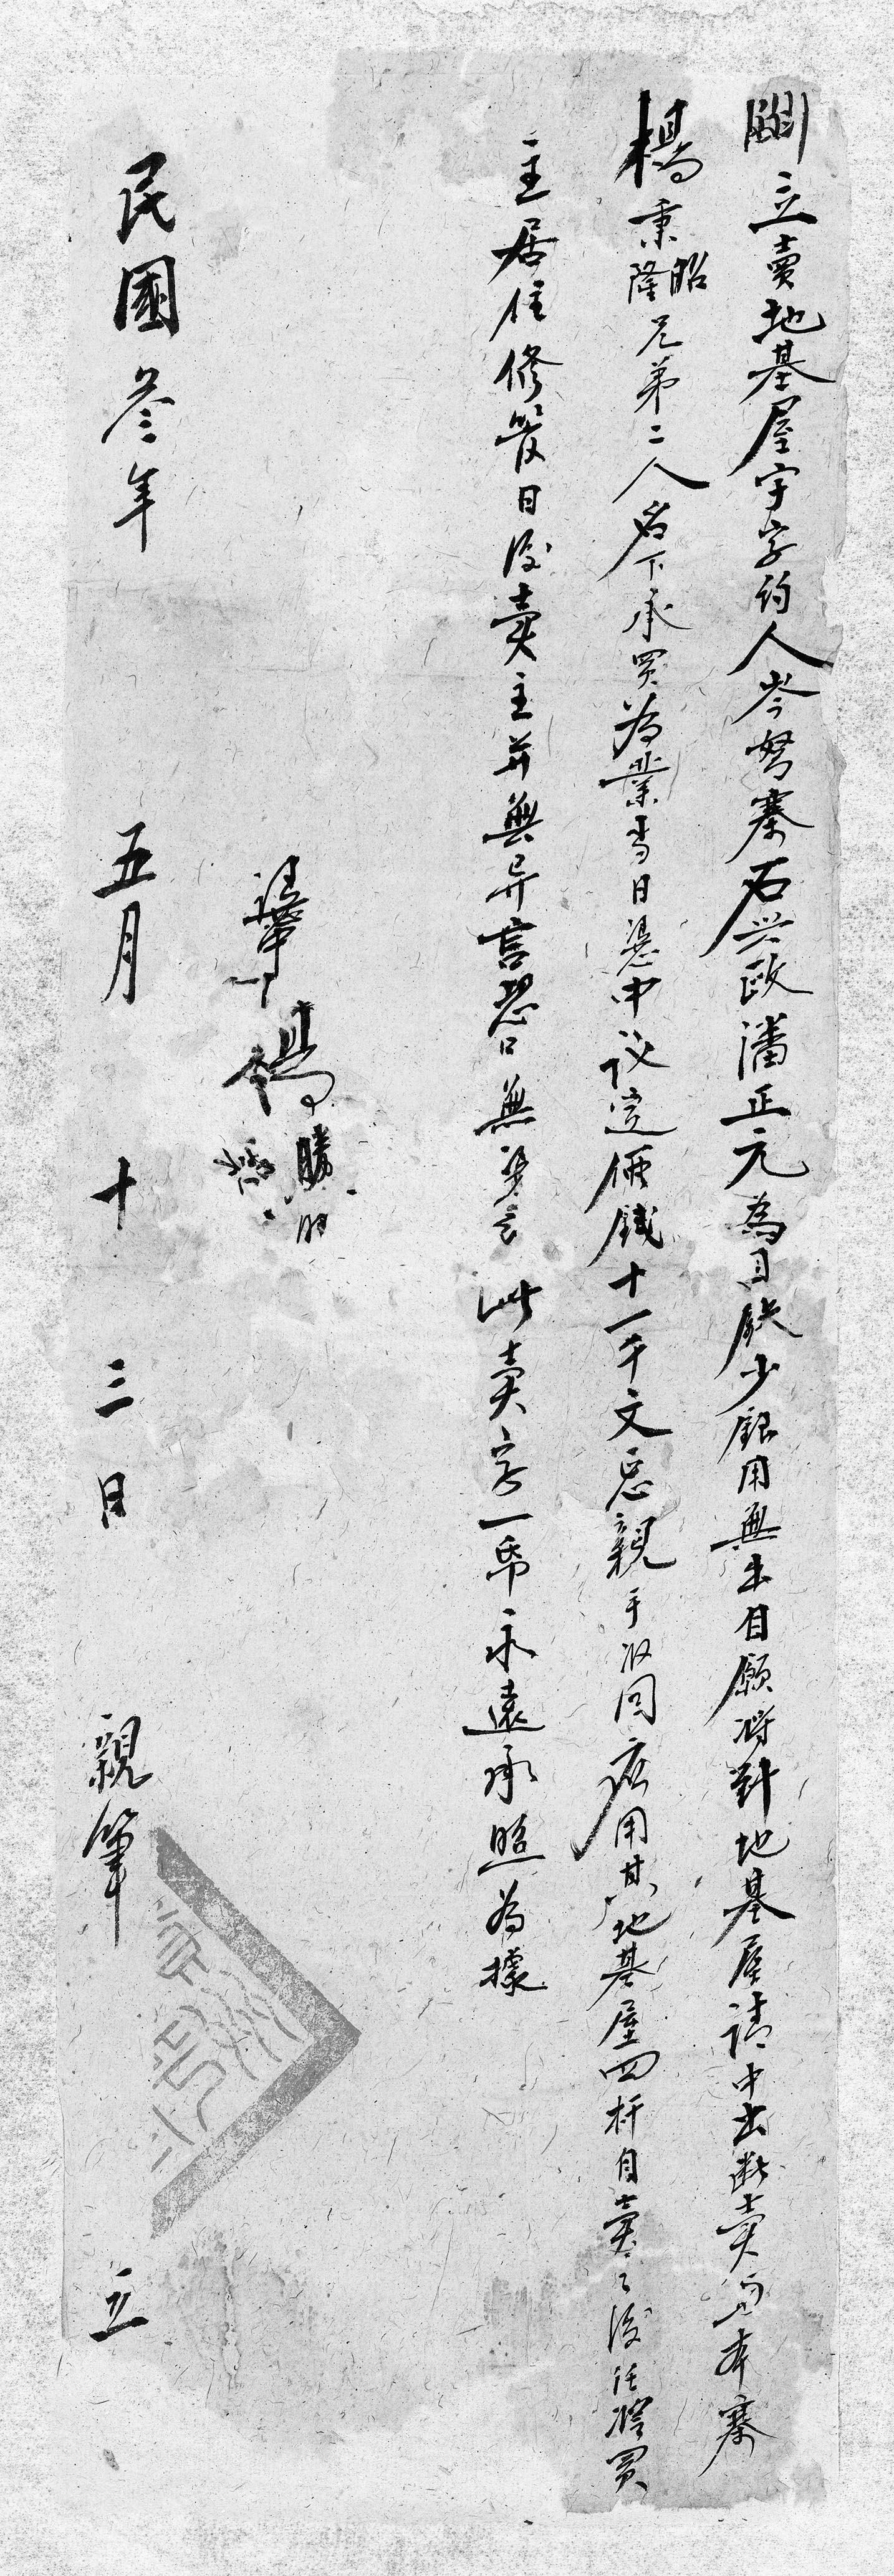 斷立賣地基屋宇字約人岑努寨石兴政潘正元為因缺少銀用無出自願將對地基屋請中出斷賣与本寨
楊秉昭隆兄弟二人名下承買為業当日憑中议定價錢十一千文忘親手收回应用其地基屋四杆自賣之後任憑買
主居住修管日後賣主并無异言恐口無憑立此賣字一帋永遠承照為據
憑中 楊勝
民國叁年五月十三日親筆立